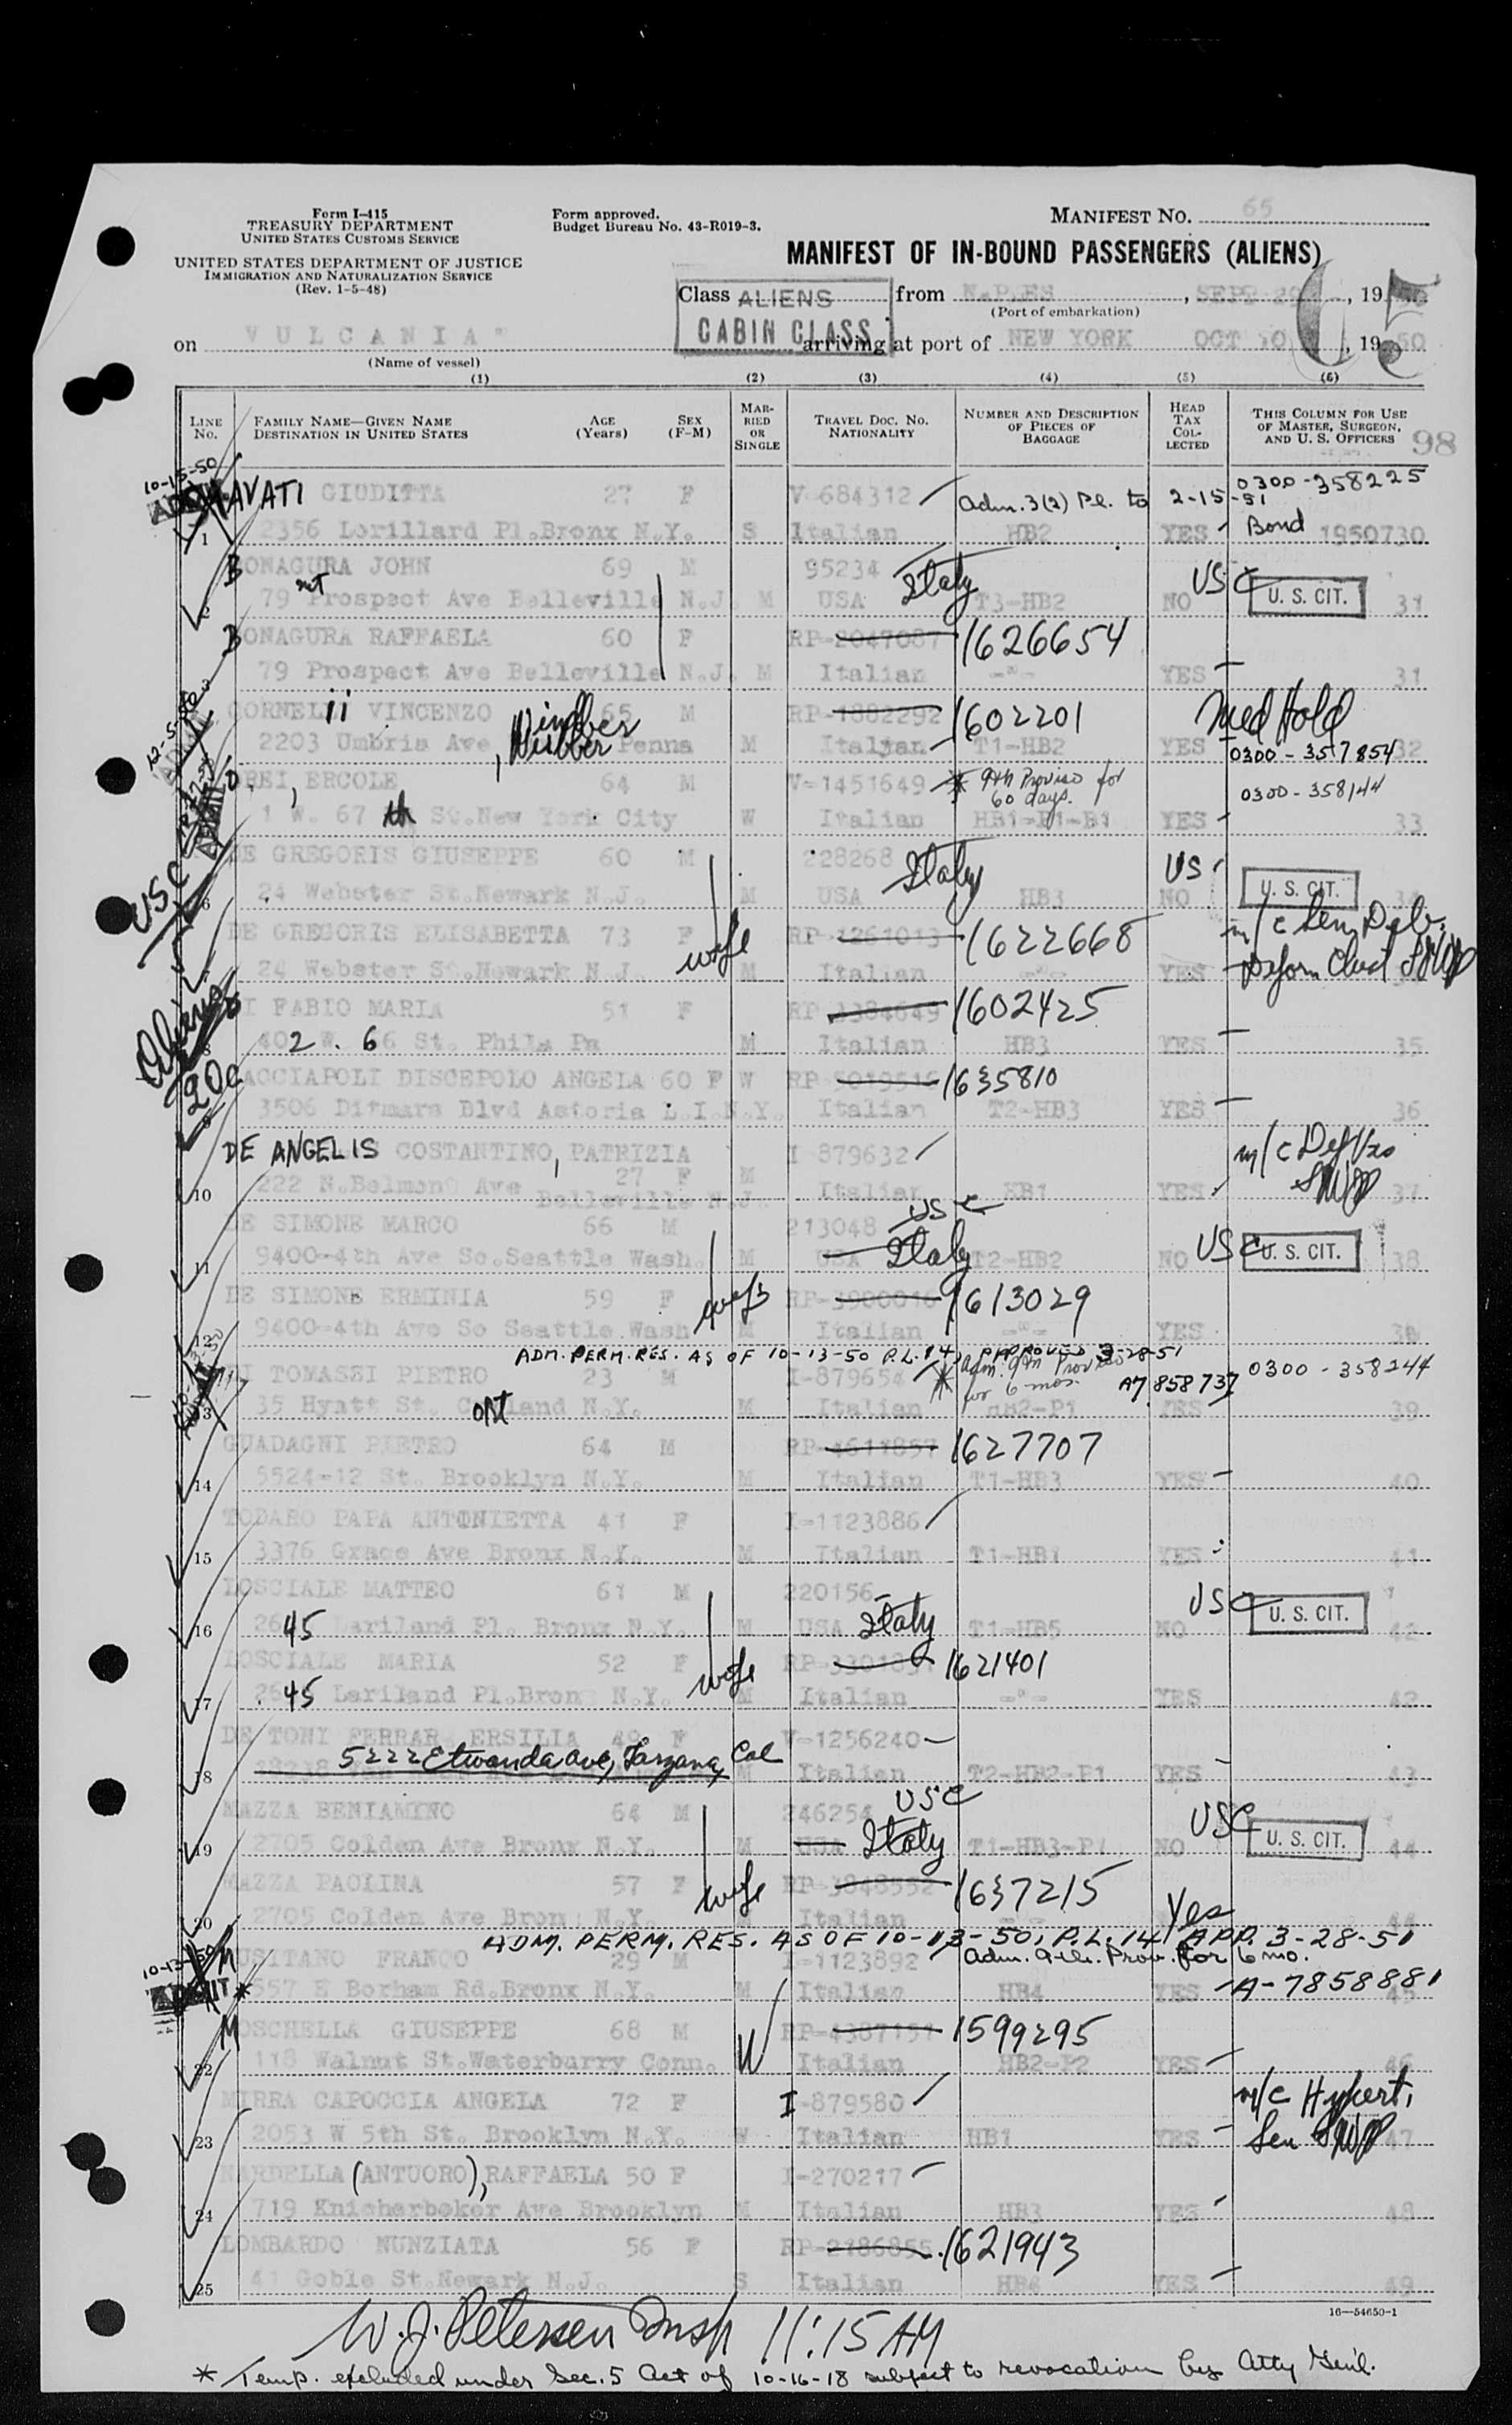 Form I-415
TREASURY DEPARTMENT
UNITED STATES CUSTOMS SERVICE
UNITED STATES DEPARTMENT OF JUSTICE
IMMIGRATION AND NATURALIZATION SERVICE
(Rev. 1-5-48)
Form approved.
Budget Bureau No. 43-R019-3.
MANIFEST NO. 65
MANIFEST OF IN-BOUND PASSENGERS (ALIENS)
Class ALIENS from NAPLES, SEPT 29, 19
CABIN CLASS
(Port of embarkation)
on VULCANIA" arriving at port of NEW YORK OCT 10, 1950
(Name of vessel)
65
(1) (2) (3) (4) (5) (6)
LINE No. FAMILY NAME—GIVEN NAME DESTINATION IN UNITED STATES AGE (Years) SEX (F-M) MARRIED OR SINGLE TRAVEL DOC. NO. NATIONALITY NUMBER AND DESCRIPTION OF PIECES OF BAGGAGE HEAD TAX COLLECTED THIS COLUMN FOR USE OF MASTER, SURGEON, AND U. S. OFFICERS 98
10-15-50
AVATI GIUDITTA 27 F V-684312 Adm. 3(2) Pl. to 2-15-51 0300-358225
1 2356 Lorillard Pl.Bronx N.Y. S Italian HB2 YES Bond 1950730
BONAGURA JOHN 69 M 95234 Italy USC U. S. CIT.
2 79 Prospect Ave Belleville N.J. M USA T3-HB2 NO 31
BONAGURA RAFFAELA 60 F RP-2047087 1626654
3 79 Prospect Ave Belleville N.J. M Italian -"- YES 31
CORNELII VINCENZO 65 M RP-1882292 1602201 Med Hold
2203 Umbria Ave, Windber Penna M Italian T1-HB2 YES 0300-357854 32
DREI, ERCOLE 64 M V-1451649 * 9th Proviso for 60 days. 0300-358144
1 W. 67 th St.New York City W Italian HB1-P1-B1 YES 33
USC
DE GREGORIS GIUSEPPE 60 M 228268 Italy US U. S. CIT.
6 24 Webster St.Newark N.J. M USA HB3 NO 34
DE GREGORIS ELISABETTA 73 F wife RP-1261013 1622668 m/c Sen. Deb.
7 24 Webster St.Newark N.J. M Italian -"- YES Deform Chest
DI FABIO MARIA 51 F RP-3384649 1602425
8 402 W. 66 St. Phila Pa M Italian HB3 YES 35
ACCIAPOLI DISCEPOLO ANGELA 60 F W RP-5019516 1635810
3506 Ditmars Blvd Astoria L.I.N.Y. Italian T2-HB3 YES 36
DE ANGELIS COSTANTINO, PATRIZIA 27 F M I-879632
10 222 N.Belmont Ave Belleville N.J. Italian HB1 YES 37
DE SIMONE MARCO 66 M 213048 USC Italy USC U. S. CIT.
11 9400-4th Ave So.Seattle Wash. M USA T2-HB2 NO 38
DE SIMONE ERMINIA 59 F wife RP-3900016 1613029
12 9400-4th Ave So Seattle Wash M Italian -"- YES 38
ADM. PERM. RES. AS OF 10-13-50 P.L. 14, APPROVED 3-28-51
DI TOMASSI PIETRO 23 M I-879654 * Adm. 9th Proviso for 6 mos. A7 858 737 0300-358244
13 35 Hyatt St. Cortland N.Y. M Italian HB2-P1 YES 39
GUADAGNI PIETRO 64 M RP-4611857 1627707
14 5524-12 St. Brooklyn N.Y. M Italian T1-HB3 YES 40
TODARO PAPA ANTONIETTA 41 F I-1123886
15 3376 Grace Ave Bronx N.Y. M Italian T1-HB1 YES 41
LOSCIALE MATTEO 61 M 220156 Italy USC U. S. CIT.
16 2645 Lariland Pl. Bronx N.Y. M USA T1-HB5 NO 42
LOSCIALE MARIA 52 F wife 1621401
17 2645 Lariland Pl.Bronx N.Y. M Italian -"- YES 42
DE TONI FERRAR ERSILIA 48 F V-1256240
18 5222 Etwanda Ave, Tarzana, Cal Italian T2-HB2-P1 YES 43
MAZZA BENIAMINO 64 M 246254 USC Italy USC U. S. CIT.
19 2705 Colden Ave Bronx N.Y. M USA T1-HB3-P1 NO 44
MAZZA PAOLINA 57 F wife RP-3848552 1637215
20 2705 Colden Ave Bronx N.Y. Italian -"- Yes 44
ADM. PERM. RES. AS OF 10-13-50, P.L. 14, APP. 3-28-51
10-13-50 MUSITANO FRANCO 29 M I-1123892 Adm. 9th. Prov. for 6 mo.
ADMIT * 557 E Borham Rd.Bronx N.Y. M Italian HB4 YES A-7858881 45
MOSCHELLA GIUSEPPE 68 M RP-4387151 1599295
22 118 Walnut St.Waterburry Conn. W Italian HB2-P2 YES 46
MIRRA CAPOCCIA ANGELA 72 F I-879580 m/c Hypert,
23 2053 W 5th St. Brooklyn N.Y. W Italian HB1 YES Sen 47
NARDELLA (ANTUORO), RAFFAELA 50 F I-270217
24 719 Knicherboker Ave Brooklyn M Italian HB3 YES 48
LOMBARDO NUNZIATA 56 F RP-2186855 1621943
25 41 Goble St.Newark N.J. S Italian HB4 YES 49
16—54650-1
W. J. Petersen Insp 11:15 AM
* Temp. excluded under Sec. 5 Act of 10-16-18 subject to revocation by Atty Gen'l.